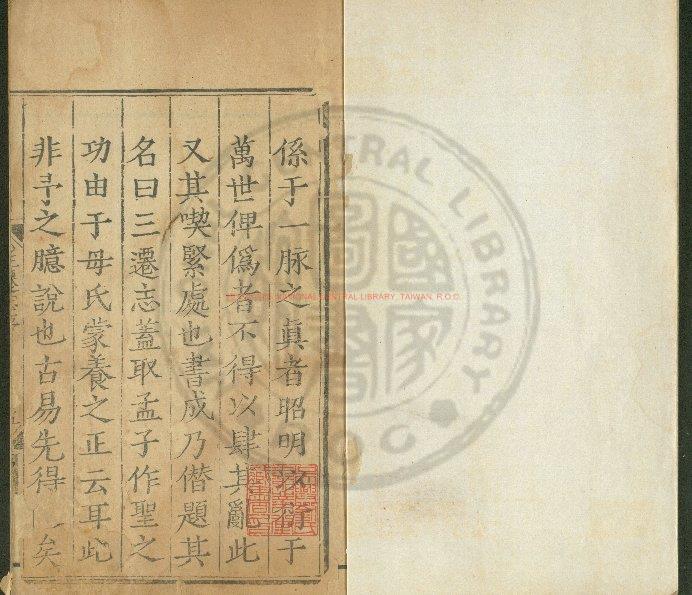 係于一脉之眞者昭明於于
萬世俾僞者不得以肆其亂此
又其喫緊處也書成乃僭題其
名曰三遷志蓋取孟子作聖之
功由于母氏蒙養之正云耳此
非予之臆說也古易先得矣
NATIONAL CENTRAL LIBRARY, TAIWAN, R.O.C.
CENTRAL LIBRARY
ROC